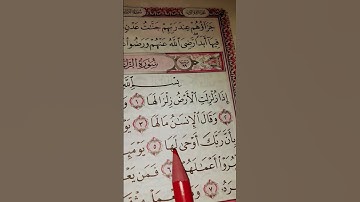 جَزَاؤُهُمْ عِندَ رَبِّهِمْ جَنَّٰتُ عَدْنٍ
فِيهَا أَبَدًا رَّضِىَ ٱللَّهُ عَنْهُمْ وَرَضُوا۟
سُورَةُ الزَّلْ
بِسْمِ ٱللَّهِ
إِذَا زُلْزِلَتِ ٱلْأَرْضُ زِلْزَالَهَا ١
٢ وَقَالَ ٱلْإِنسَٰنُ مَا لَهَا ٣
بِأَنَّ رَبَّكَ أَوْحَىٰ لَهَا ٥
أَعْمَٰلَهُمْ ٦ فَمَن يَعْ
٧